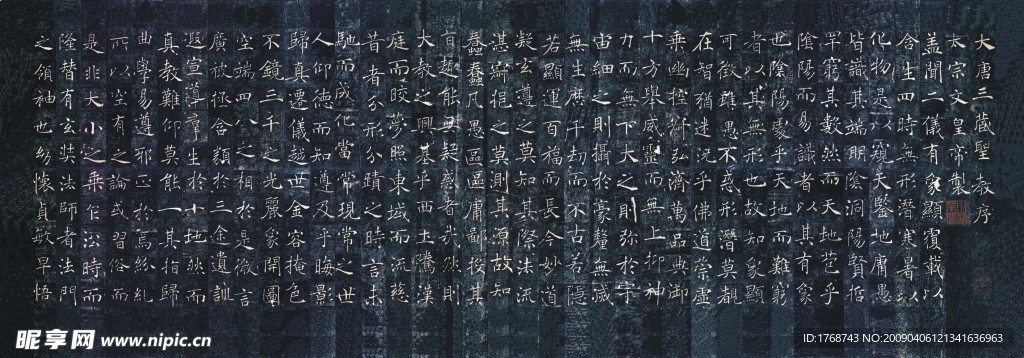 大唐三藏聖教序
太宗文皇帝製
蓋聞二儀有象顯覆載以
含生四時無形潛寒暑以
化物是以窺天鑒地庸愚
皆識其端明陰洞陽賢哲
罕窮其數然而天地苞乎
陰陽而易識者以其有象
也陰陽處乎天地而難窮
者以其無形也故知象顯
可徵雖愚不惑形潛莫覩
在智猶迷況乎佛道崇虛
乘幽控寂弘濟萬品典御
十方舉威靈而無上抑神
力而無下大之則弥於宇
宙細之則攝於豪釐無滅
無生歷千劫而不古若隱
若顯運百福而長今妙道
凝玄遵之莫知其際法流
湛寂挹之莫測其源故知
蠢蠢凡愚區區庸鄙投其
旨趣能無疑惑者哉然則
大教之興基乎西土騰漢
庭而皎夢照東域而流慈
昔者分形分蹟之時言未
馳而成化當常現常之世
人仰德而知遵及乎晦影
歸真遷儀越世金容掩色
不鏡三千之光麗象開圖
空端四八之相於是微言
廣被拯含類於三途遺訓
遐宣導群生於十地然而
真教難仰莫能一其指歸
曲學易遵邪正於焉紛糺
所以空有之論或習俗而
是非大小之乘乍沿時而
隆替有玄奘法師者法門
之領袖也幼懷貞敏早悟
昵享网 www.nipic.cn
ID:1768743 NO:20090406121341636963